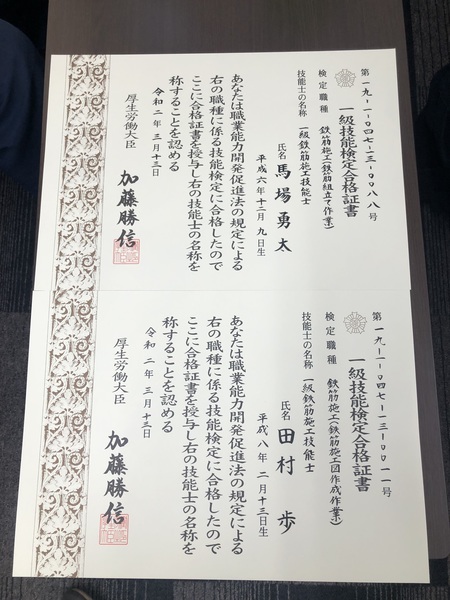 第一九-一-〇四七-一三-〇〇八八号
一級技能検定合格証書
検定職種 鉄筋施工(鉄筋組立て作業)
技能士の名称 一級鉄筋施工技能士
氏名 馬場勇太
平成六年十二月九日生
あなたは職業能力開発促進法の規定による
右の職種に係る技能検定に合格したので
ここに合格証書を授与し右の技能士の名称を
称することを認める
令和二年三月十三日
厚生労働大臣 加藤勝信
第一九-一-〇四七-一三-〇〇一一号
一級技能検定合格証書
検定職種 鉄筋施工(鉄筋施工図作成作業)
技能士の名称 一級鉄筋施工技能士
氏名 田村歩
平成八年二月十三日生
あなたは職業能力開発促進法の規定による
右の職種に係る技能検定に合格したので
ここに合格証書を授与し右の技能士の名称を
称することを認める
令和二年三月十三日
厚生労働大臣 加藤勝信